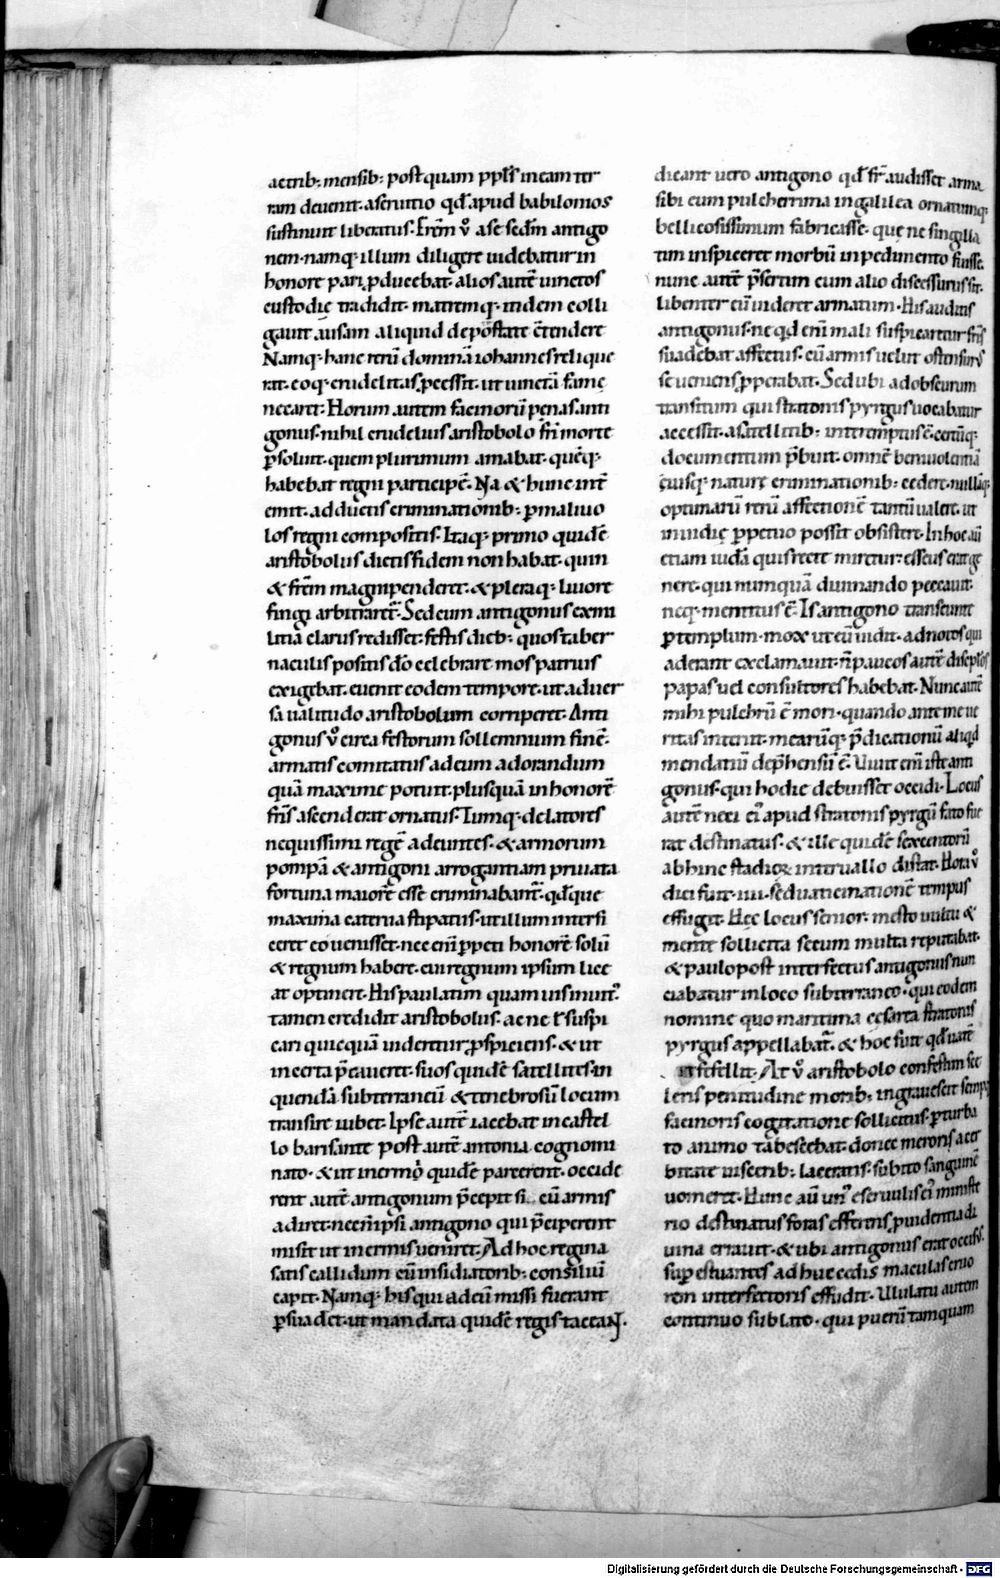 ac trib; mensib; post quam ppl's in eam ter
ram deuenit. a seruitio qđ apud babilonios
sustinuit liberatus. Frēm v̊ a se sedm̄ antigo
nem. namq; illum diligere uidebatur in
honore pari pducebat. alios autē uinctos
custodię tradidit. matremq; itidem colli
gauit. ausam aliquid de potestate ctendere
Namq; hanc rerū dominā iohannes relique
rat. eoq; crudelitas pcessit. ut uinctā famę
necaret. Horum autem facinorū penas anti
gonus. nihil crudelius aristobolo fr̄i morte
psoluit. quem plurimum amabat. quēq;
habebat regni participē. Nā & hunc int̄
emit. adductis criminationib; p maliuo
los regni compositis. Itaq; primo quidē
aristobolus dictis fidem non habat. quin
& frēm magnipenderet. & pleraq; liuore
fingi arbitraret̄. Sed cum antigonus ex mi
litia clarus redisset. festis dieb; quos taber
naculis positis dō celebrare mos patrius
exigebat. euenit eodem tempore. ut aduer
sa ualitudo aristobolum corriperet. Anti
gonus v̊ circa festorum sollemnium finē.
armatis comitatus ad eum adorandum
quā maxime potuit. plusquā in honorē
fr̄is ascenderat ornatus. Tumq; delatores
nequissimi regē adeuntes. & armorum
pompā & antigoni arrogantiam priuata
fortuna maiorē esse criminabant̄. qđque
maxima caterua stipatus. ut illum interfi
ceret eo uenisset. nec enī ppeti honorē solū
& regnum habere. cui regnum ipsum lice
at optinere. His paulatim quam inuit᷒.
tamen credidit aristobolus. ac ne l' suspi
cari quicquā uideretur pspiciens. & ut
incerta p̄caueret. suos quidē satellites in
quendā subterraneū & tenebrosū locum
transire iubet. Ipse autē iacebat in castel
lo. baris ante post autē antonia cognomi
nato. & ut inermo quidē parcerent. occide
rent autē antigonum p̄cepit si cū armis
adiret. nec nī ipsi antigono qui p̄ciperent
misit ut inermis ueniret. Ad hoc regina
satis callidum cū insidiatorib; consiliū
capit. Namq; his qui ad eū missi fuerant
psuadet. ut mandata quidē regis taceaN.
dicant uero antigono qđ fr̄ audisset arma
sibi eum pulcherrima in galilea ornatumq;
bellicosissimum fabricasse. quę ne singilla
tim inspiceret morbū inpedimento fuisse.
nunc autē p̄sertim cum alio discessurus sit.
libenter eū uideret armatum. His auditis
antigonus. ne qd enī mali suspicaretur fr̄is
suadebat affectus. cū armis uelut ostensurus
se ueniens pperabat. Sed ubi ad obscurum
transitum qui stratonis pyrgus uocabatur
accessit. a satellitib; interemptus ē. certūq;
documentum p̄buit. omnē beniuolentiā
cuiusq; naturę criminationib; cedere. nullāq;
optimarū rerū affectionē tantū ualere. ut
inuidię ppetuo possit obsistere. In hoc aū
etiam iudā quis recte miretur. esseus erat ge
nere. qui numquā diuinando peccauit.
neq; mentitus ē. Is antigono transeunte
p templum. mox ut eū uidit. ad notos qui
aderant exclamauit. n̄ paucos autē discip'los
papas uel consultores habebat. Nunc autē
mihi pulchrū ē mori. quando ante me ue
ritas interit. mearūq; p̄dicationū aliqd
mendatiū dep̄hensū ē. Viuit enī iste anti
gonus. qui hodie debuisset occidi. Locus
autē neci ei᷒ apud stratonis pyrgū fato fue
rat destinatus. & ille quidē sexcentorū
abhinc stadioꝝ interuallo distat. Hora v̊
diei fuit. iiii. sed uaticinationē tempus
effugit. Hęc locus senior. mesto uultu &
mente sollicita secum multa reputabat.
& paulo post interfectus antigonus nun
ciabatur in loco subterraneo. qui eodem
nomine quo maritima cesarea stratonis
pyrgus appellabat̄. & hoc fuit qđ uatē
fefellit. At v̊ aristobolo confestim sce
leris penitudine morb; ingrauescit semp
facinoris cogitatione sollicitus. pturba
to animo tabescebat. donec meroris acer
bitate uiscerib; laceratis. subito sanguinē
uomeret. Hunc aū un᷒ e seruulis ei᷒ ministe
rio destinatus foras efferens. puidentia di
uina errauit. & ubi antigonus erat occis᷒.
sup estuantes adhuc cedis maculas cruo
rem interfectoris effudit. Vlulatu autem
continuo sublato. qui puerū tamquam
Digitalisierung gefördert durch die Deutsche Forschungsgemeinschaft - DFG